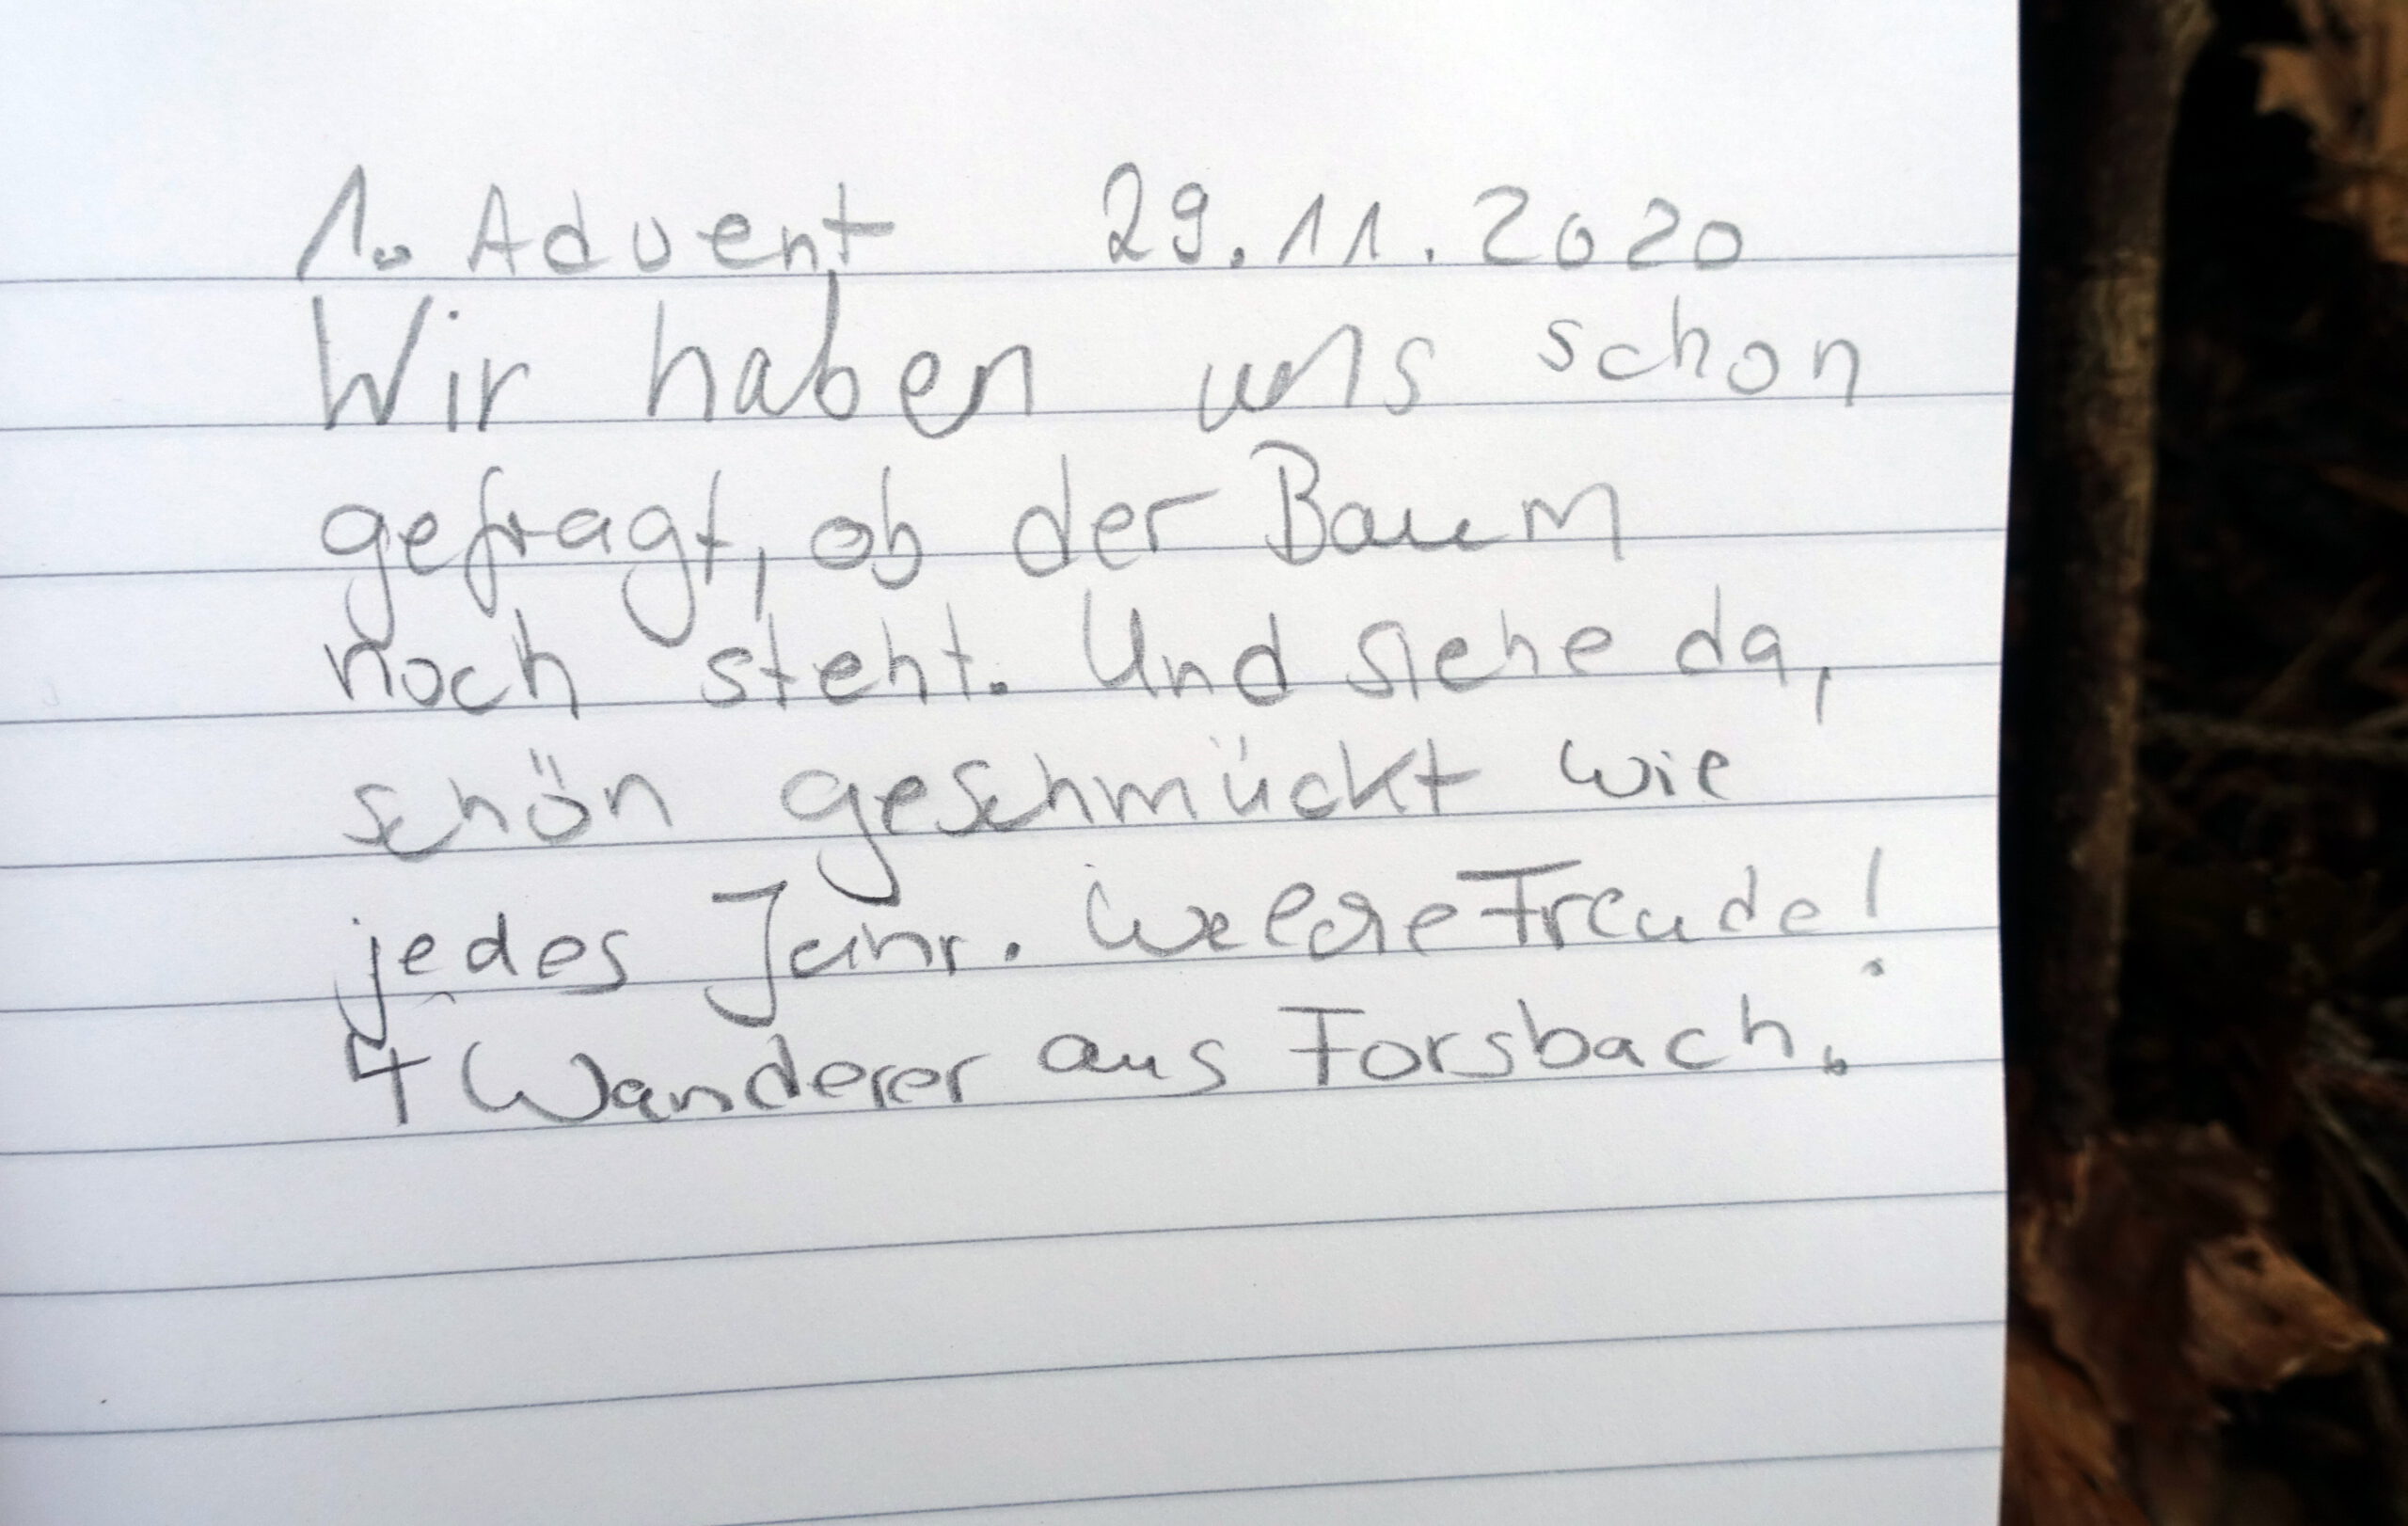 1. Advent 29.11.2020
Wir haben uns schon
gefragt, ob der Baum
noch steht. Und siehe da,
schön geschmückt wie
jedes Jahr. Welche Freude!
4 Wanderer aus Forsbach.